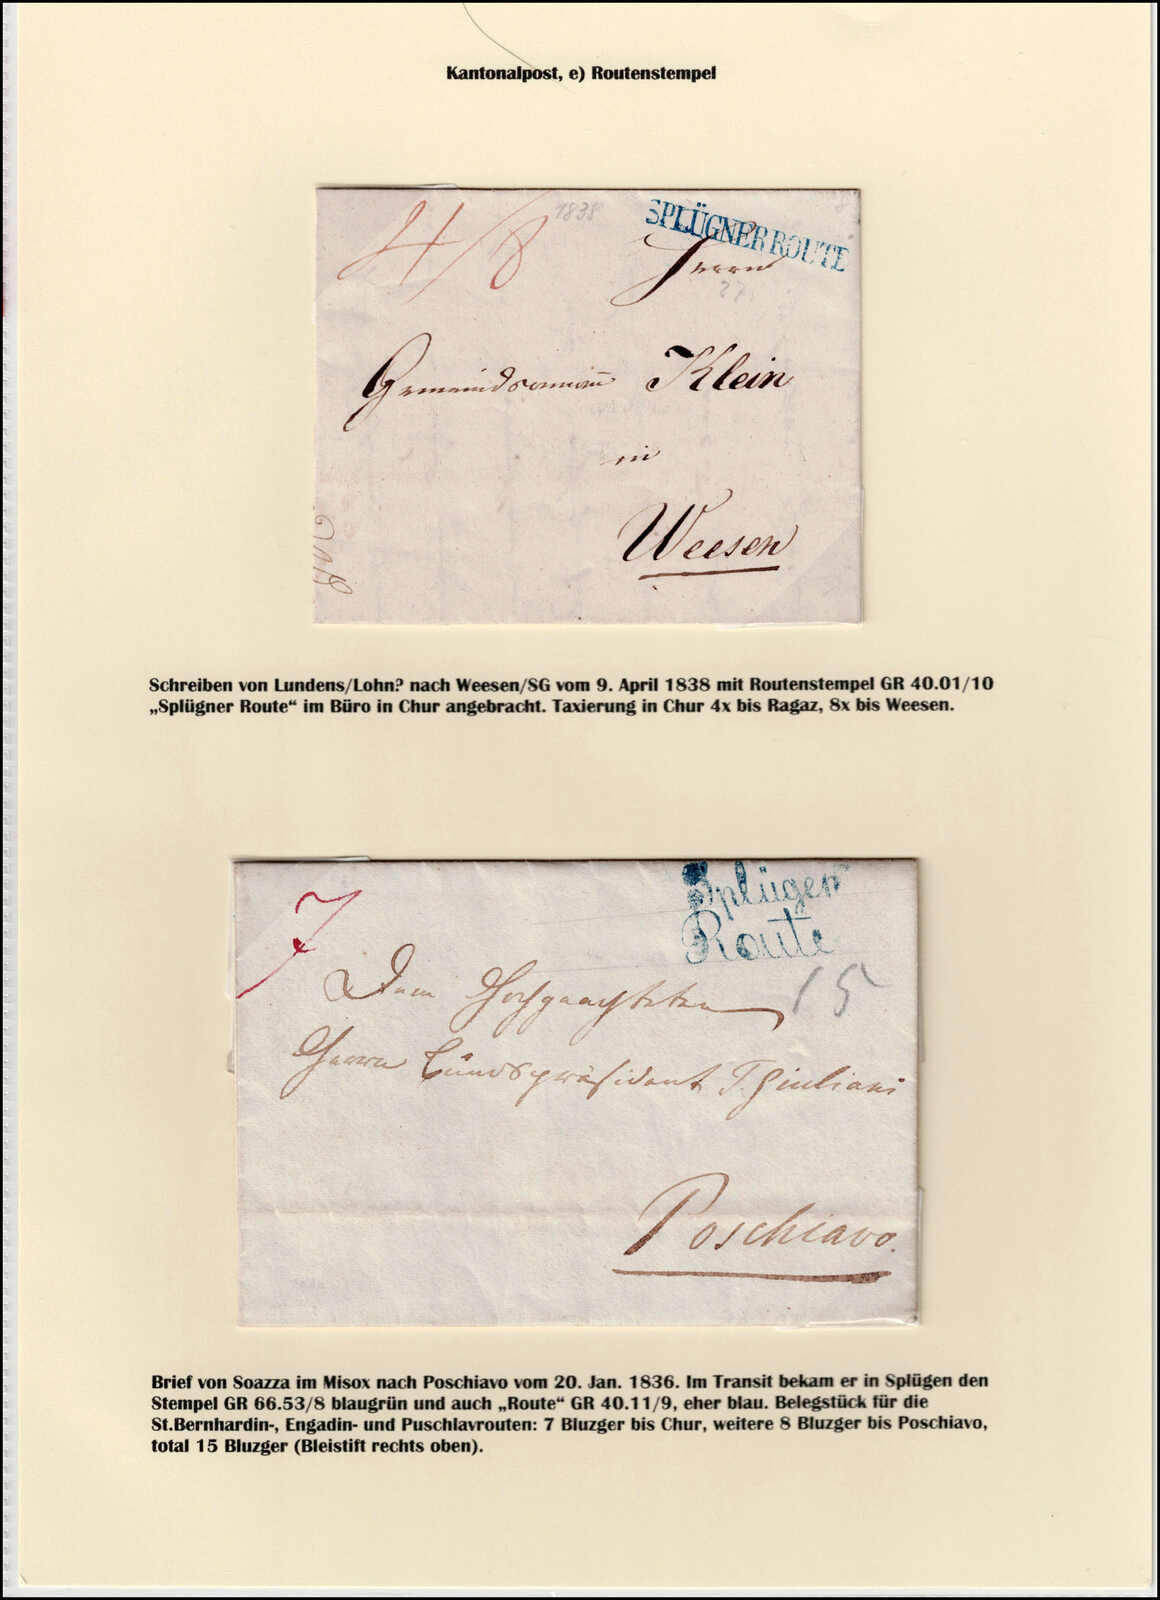 Kantonalpost, e) Routenstempel
4/8
1838
SPLÜGNER ROUTE
Herrn
27.
Gemeindeammann Klein
in
Weesen
Schreiben von Lundens/Lohn? nach Weesen/SG vom 9. April 1838 mit Routenstempel GR 40.01/10
„Splügner Route“ im Büro in Chur angebracht. Taxierung in Chur 4x bis Ragaz, 8x bis Weesen.
7
Splügen
Route
15
Dem Hochgeachteten
Herrn Bundspräsident T. Giuliani
Poschiavo.
Brief von Soazza im Misox nach Poschiavo vom 20. Jan. 1836. Im Transit bekam er in Splügen den
Stempel GR 66.53/8 blaugrün und auch „Route“ GR 40.11/9, eher blau. Belegstück für die
St.Bernhardin-, Engadin- und Puschlavrouten: 7 Bluzger bis Chur, weitere 8 Bluzger bis Poschiavo,
total 15 Bluzger (Bleistift rechts oben).